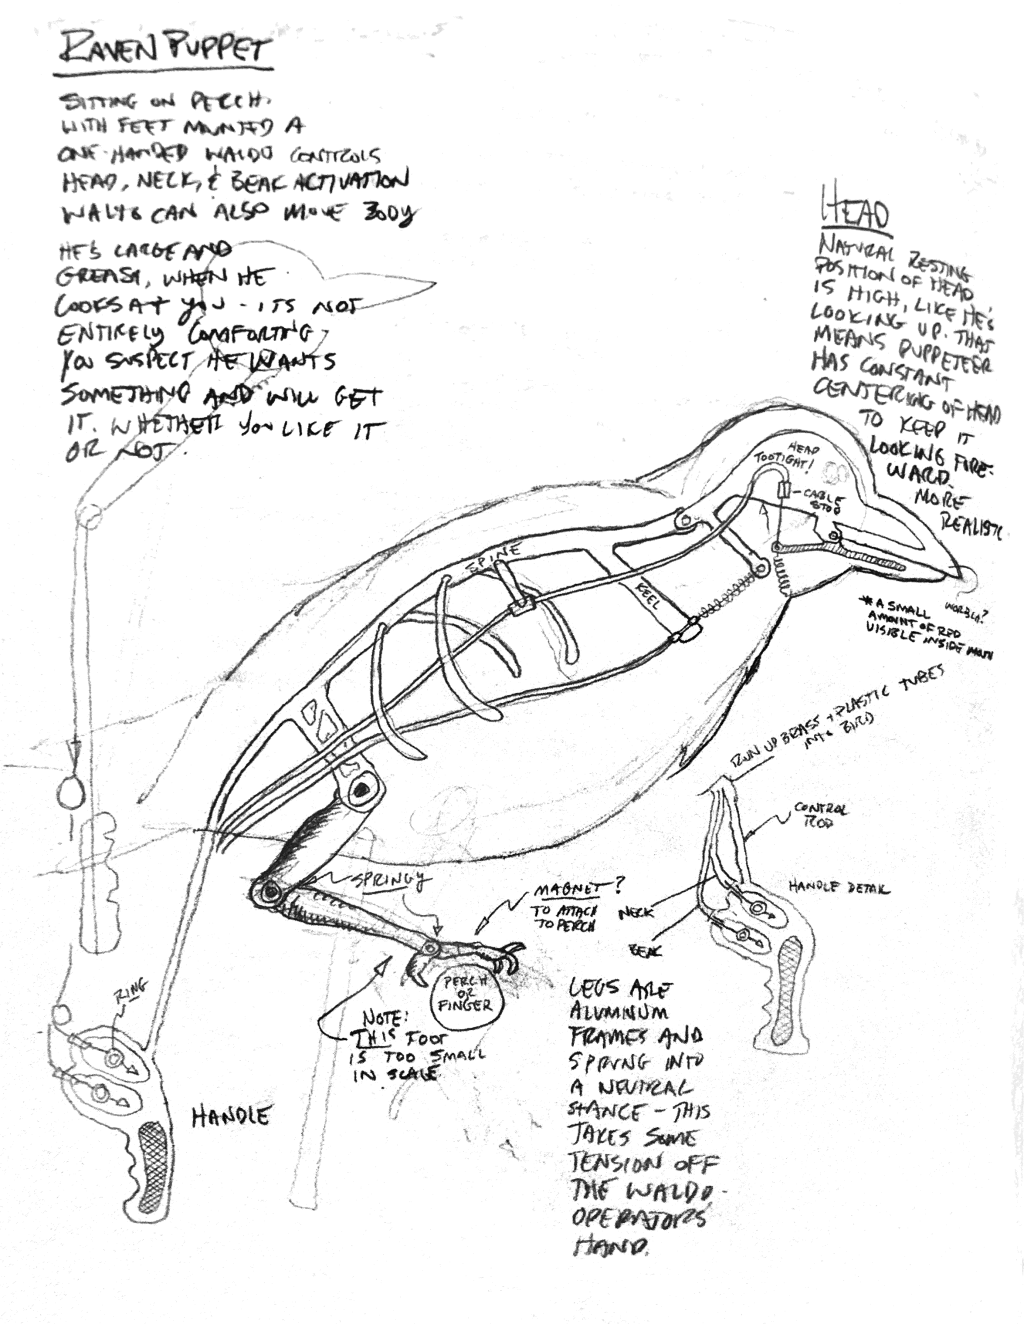 RAVEN PUPPET
SITTING ON PERCH.
WITH FEET MOUNTED A
ONE-HANDED WALDO CONTROLS
HEAD, NECK, & BEAK ACTIVATION
WALDO CAN ALSO MOVE BODY
HE'S LARGE AND
GREASY, WHEN HE
LOOKS AT YOU - ITS NOT
ENTIRELY COMFORTING
YOU SUSPECT HE WANTS
SOMETHING AND WILL GET
IT. WHETHER YOU LIKE IT
OR NOT.
HEAD
NATURAL RESTING
POSITION OF HEAD
IS HIGH, LIKE HE'S
LOOKING UP. THAT
MEANS PUPPETEER
HAS CONSTANT
CENTERING OF HEAD
TO KEEP IT
LOOKING FORE-
WARD.
MORE
REALISTIC
HEAD
TOO TIGHT!
CABLE
STOP
SPINE
KEEL
* A SMALL
AMOUNT OF RED
VISIBLE INSIDE MOUTH
RUN UP BRASS + PLASTIC TUBES
INTO BIRD
CONTROL
ROD
HANDLE DETAIL
NECK
BEAK
SPRINGY
MAGNET?
TO ATTACH
TO PERCH
PERCH
OR
FINGER
NOTE:
THIS FOOT
IS TOO SMALL
IN SCALE
RING
HANDLE
LEGS ARE
ALUMINUM
FRAMES AND
SPRUNG INTO
A NEUTRAL
STANCE - THIS
TAKES SOME
TENSION OFF
THE WALDO
OPERATORS
HAND.